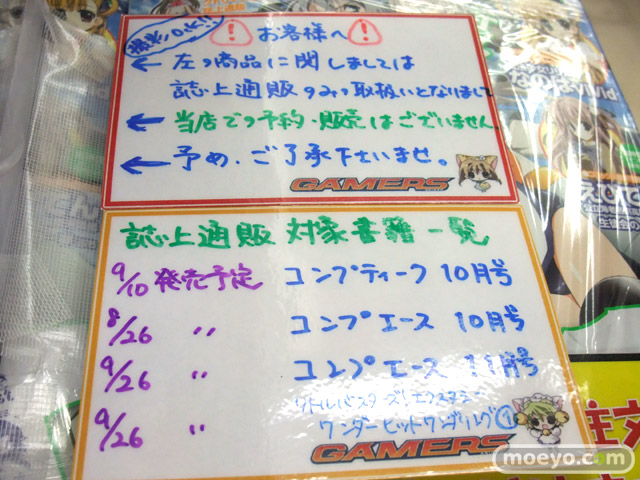 撮影OK!!
! お客様へ !
← 左の商品に関しましては
誌上通販のみの取扱いとなりまして
← 当店での予約・販売はございません。
← 予め、ご了承下さいませ。
GAMERS
誌上通販 対象書籍 一覧
9/10 発売予定 コンプティーク 10月号
8/26 〃 コンプエース 10月号
9/26 〃 コンプエース 11月号
リトルバスターズ!エクスタシー
9/26 〃 ワンダービットワンダリング①
GAMERS
なのはViVid
注文
moeyo.com